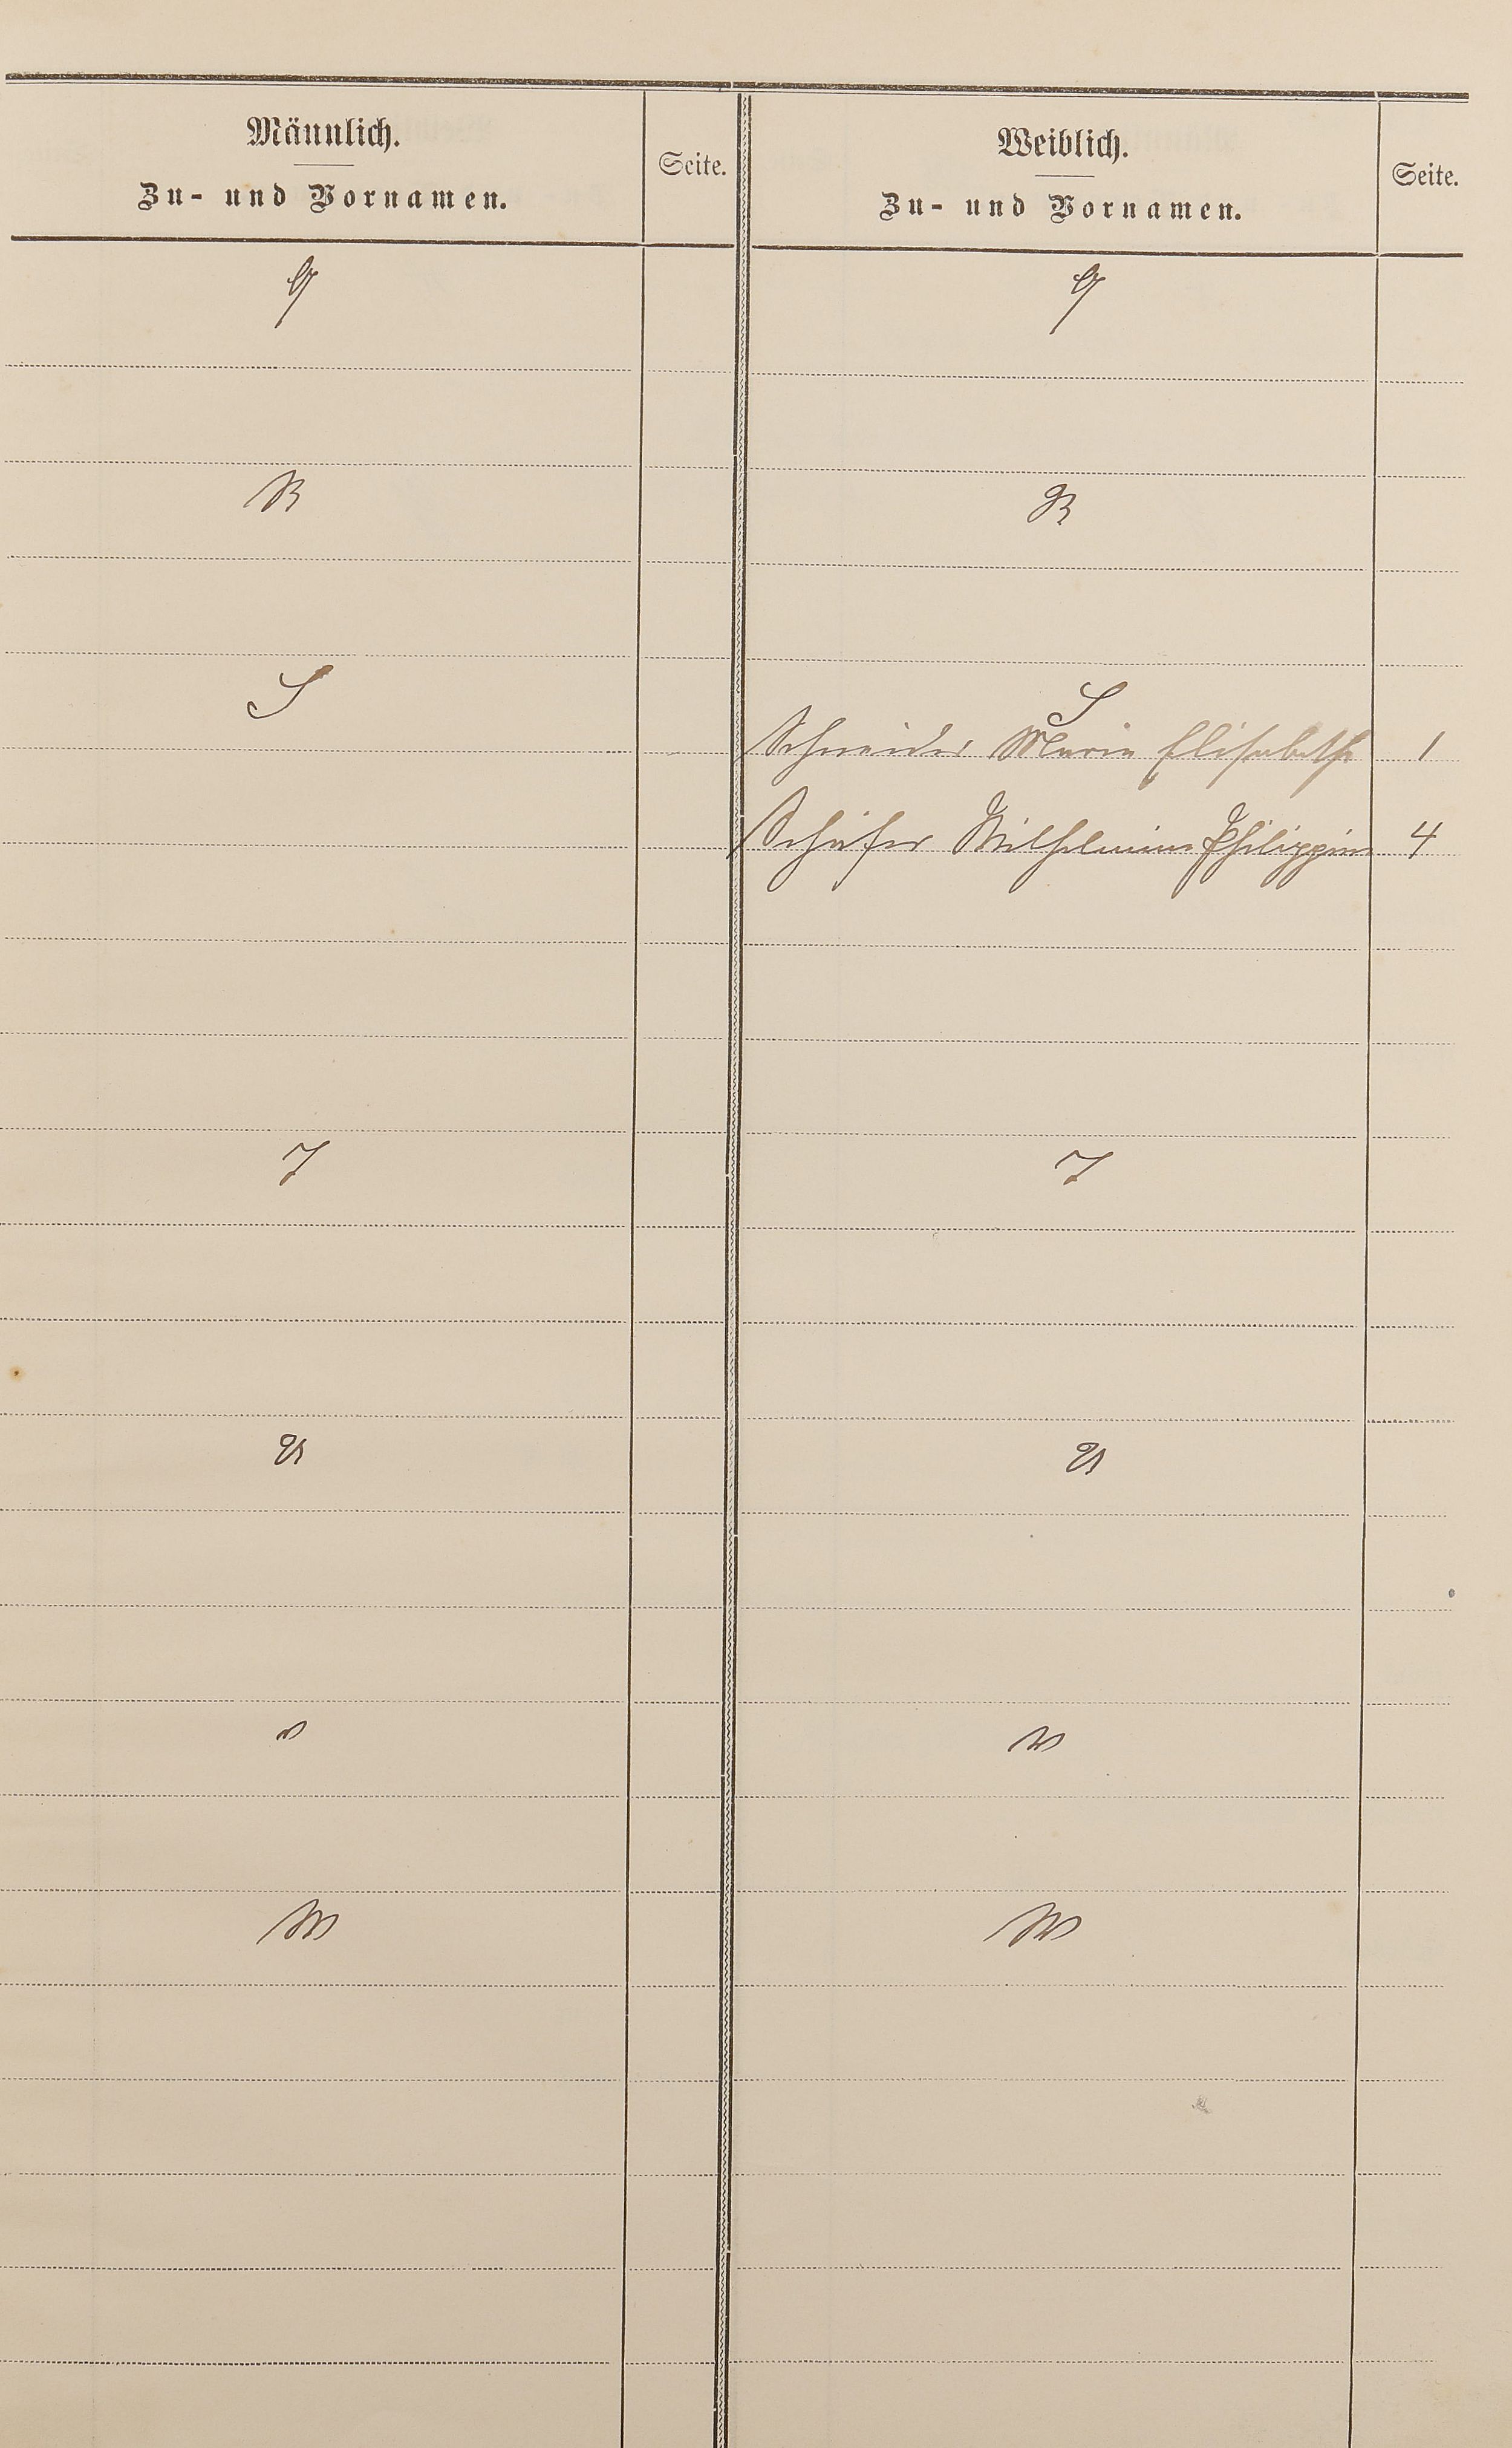 Männlich. Weiblich.
Seite. Seite.
Zu- und Vornamen. Zu- und Vornamen.
Q Q
R R
S S
Schneider Marie Elisabethe 1
Schäfer Wilhelmine Philippine 4
T T
U U
V V
W W